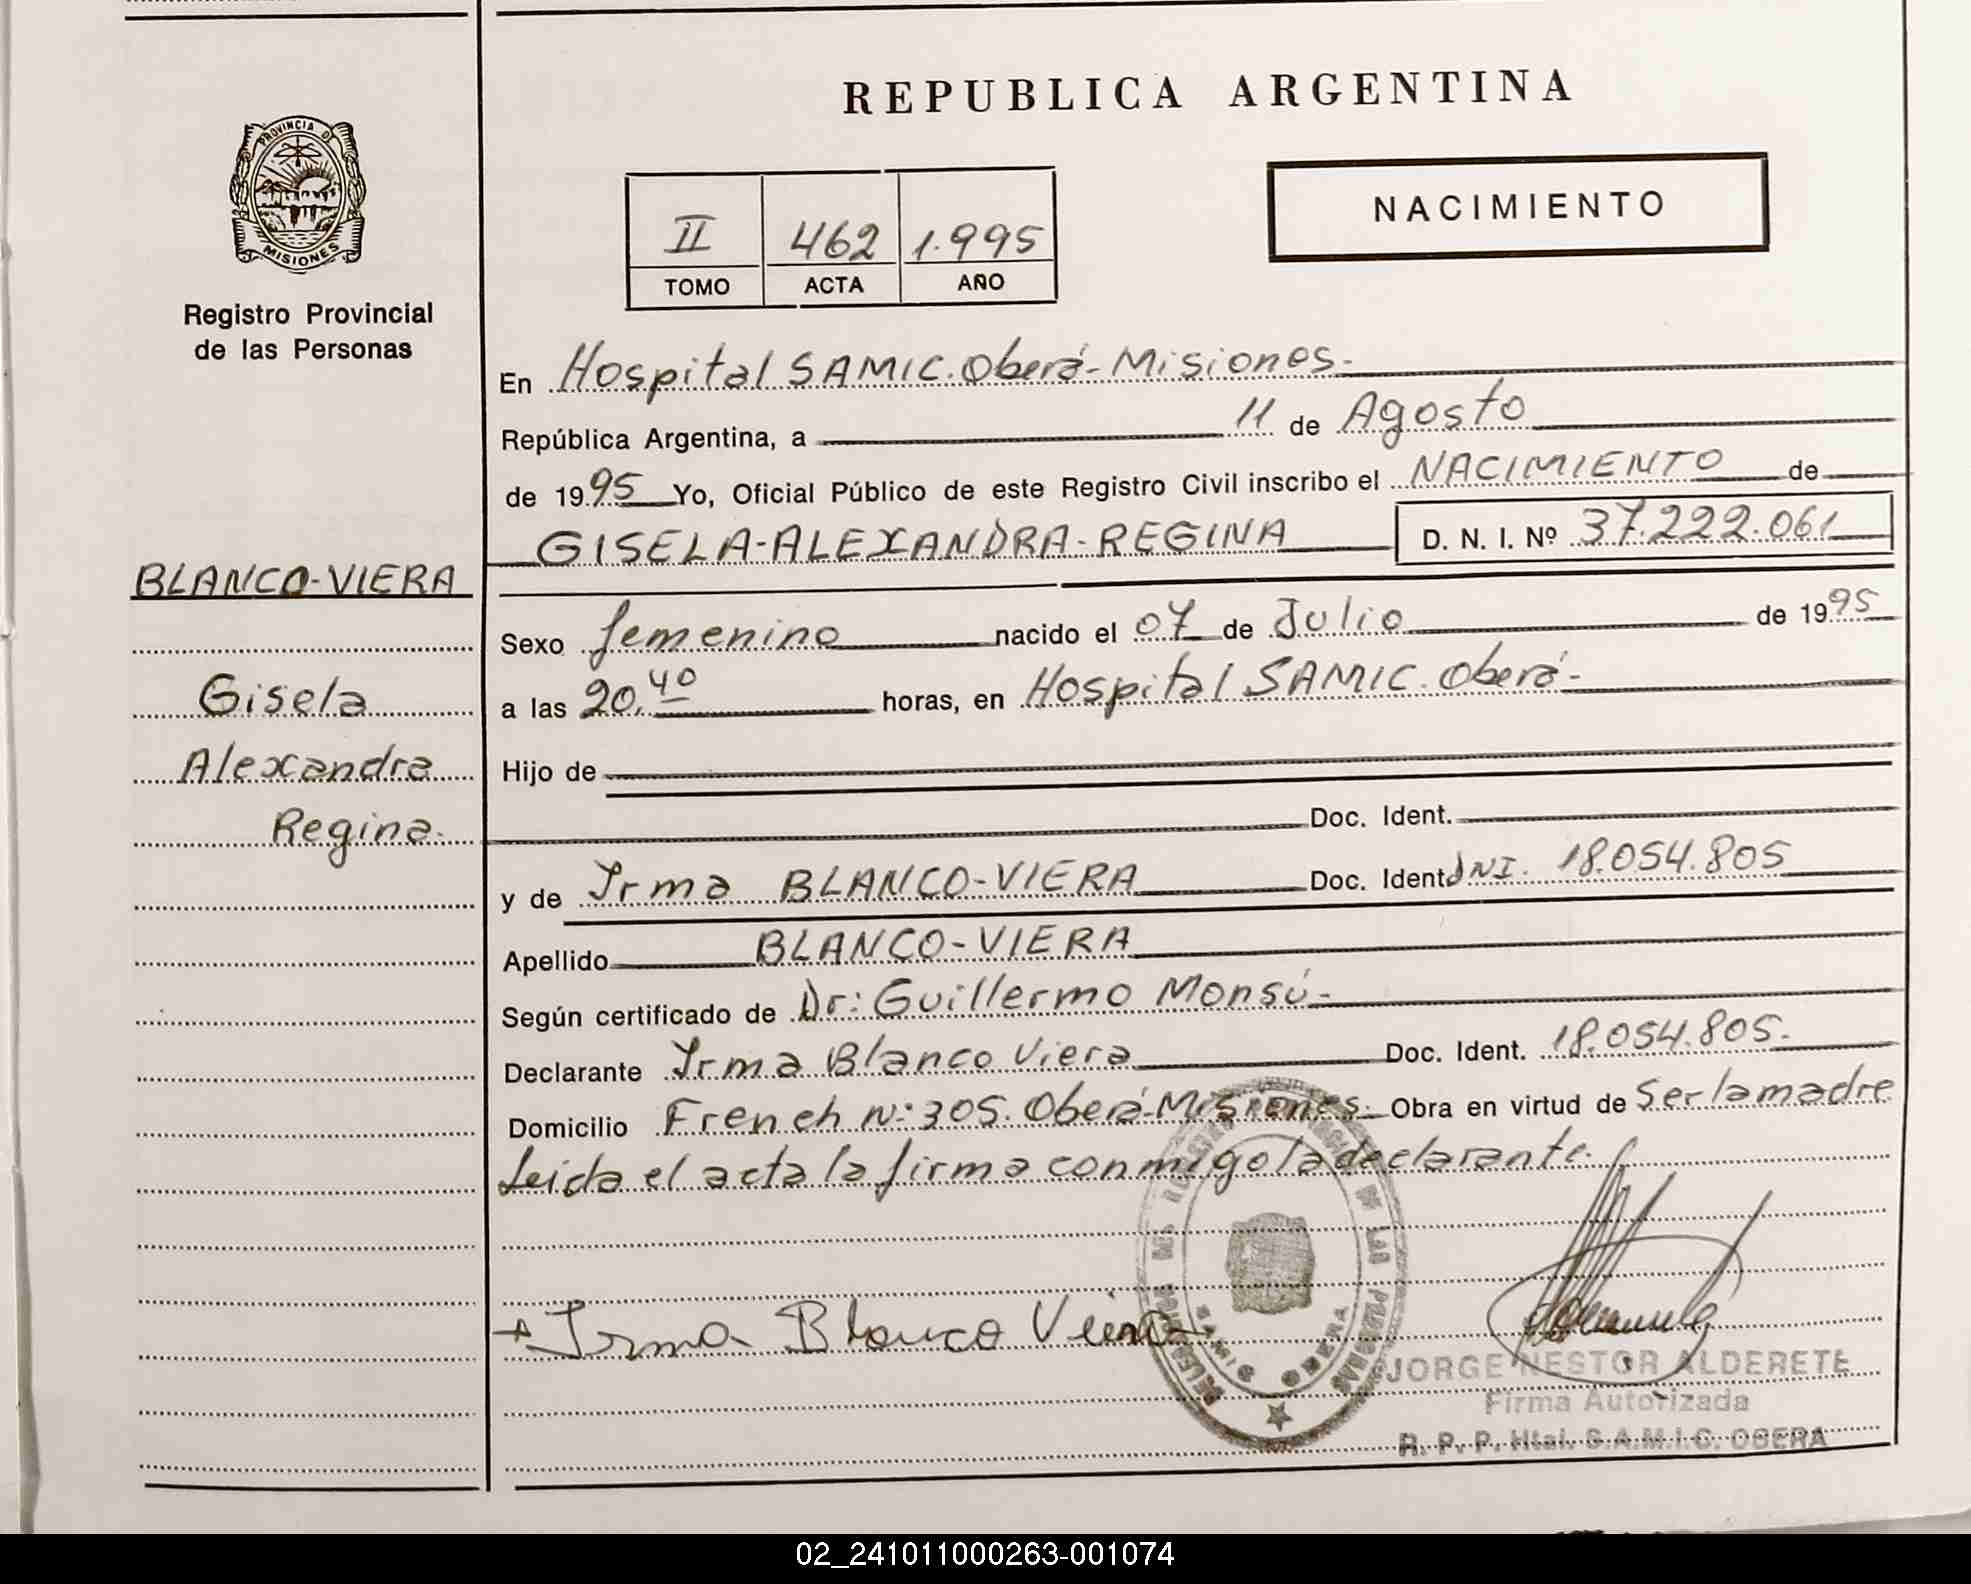 REPUBLICA ARGENTINA
PROVINCIA DE
MISIONES
Registro Provincial
de las Personas
II 462 1.995
TOMO ACTA AÑO
NACIMIENTO
En Hospital SAMIC. Oberá- Misiones.-
República Argentina, a 11 de Agosto
de 1995 Yo, Oficial Público de este Registro Civil inscribo el NACIMIENTO de
GISELA-ALEXANDRA-REGINA D. N. I. Nº 37.222.061
BLANCO-VIERA
Gisela
Alexandra
Regina.
Sexo femenino nacido el 07 de Julio de 1995
a las 20,40 horas, en Hospital SAMIC. Oberá-
Hijo de
Doc. Ident.
y de Irma BLANCO-VIERA Doc. Ident. DNI. 18.054.805
Apellido BLANCO-VIERA
Según certificado de Dr: Guillermo Monsú-
Declarante Irma Blanco Viera Doc. Ident. 18.054.805.-
Domicilio French Nº: 305. Oberá-Misiones.- Obra en virtud de Ser la madre
Leida el acta la firma conmigo la declarante.
+ Irma Blanco Viera
JORGE NESTOR ALDERETE
Firma Autorizada
R. P. P. Htal. S.A.M.I.C. OBERA
02_241011000263-001074